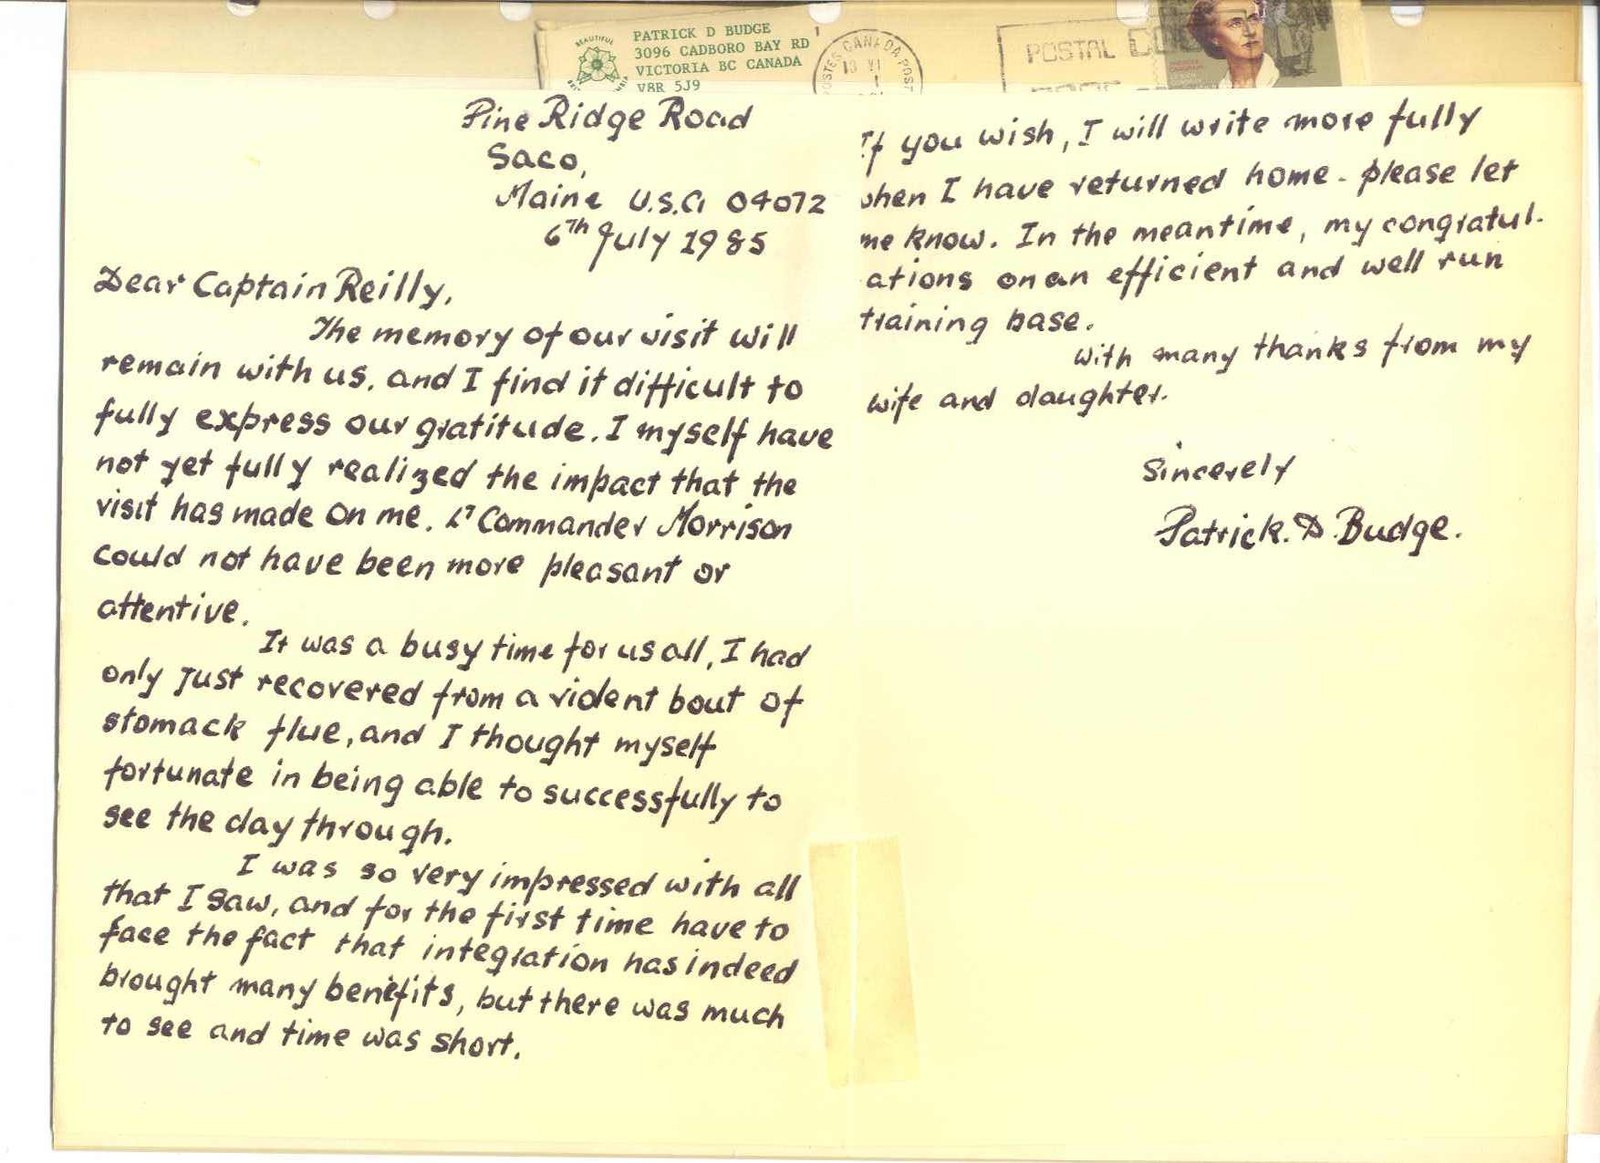 PATRICK D BUDGE
3096 CADBORO BAY RD
VICTORIA BC CANADA
V8R 5J9
BEAUTIFUL
POSTES CANADA POST
13 VI
POSTAL CO
Pine Ridge Road
Saco,
Maine U.S.A 04072
6th July 1985
Dear Captain Reilly,
The memory of our visit will
remain with us, and I find it difficult to
fully express our gratitude. I myself have
not yet fully realized the impact that the
visit has made on me. Lt Commander Morrison
could not have been more pleasant or
attentive.
It was a busy time for us all, I had
only just recovered from a violent bout of
stomack flue, and I thought myself
fortunate in being able to successfully to
see the day through.
I was so very impressed with all
that I saw, and for the first time have to
face the fact that integration has indeed
brought many benefits, but there was much
to see and time was short.
If you wish, I will write more fully
when I have returned home - please let
me know. In the meantime, my congratul-
ations on an efficient and well run
training base.
With many thanks from my
wife and daughter.
Sincerely
Patrick. D. Budge.